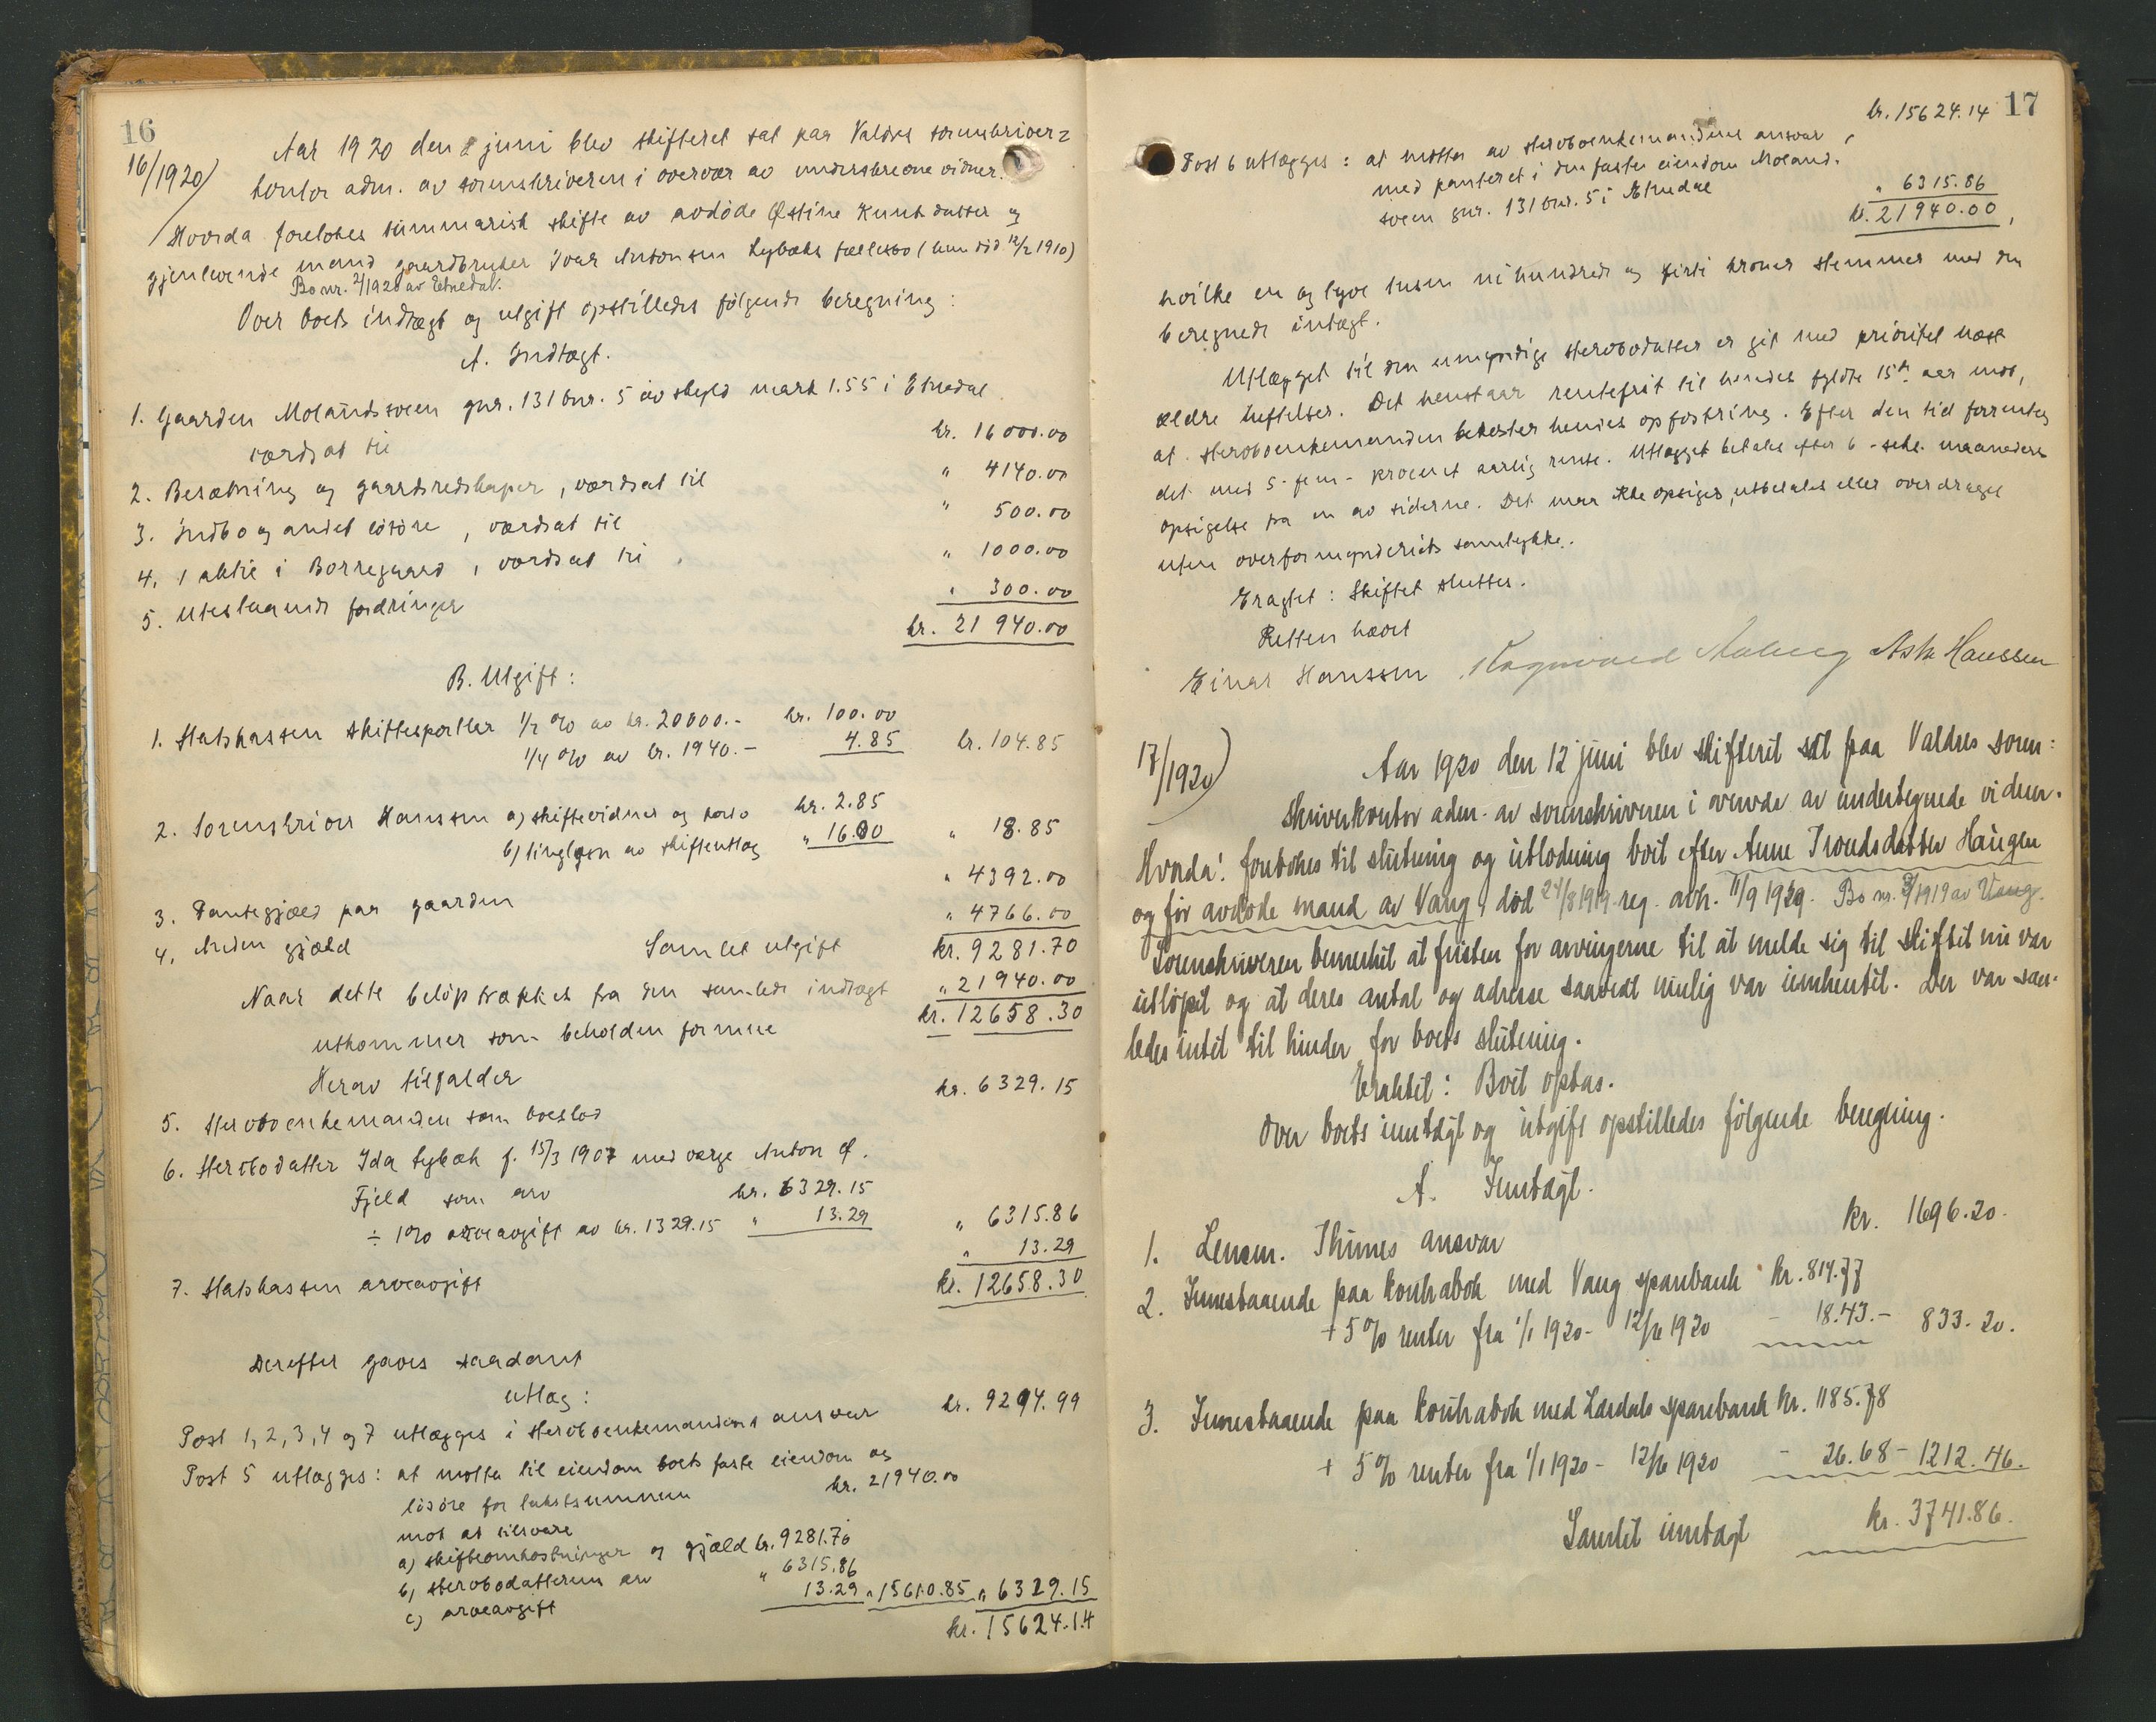 16
16/1920) Aar 1920 den 8 juni blev skiftet sat paa Valdres sorenskriver=
kontor adm. av sorenskriveren i overvær av underskrevne vidner.
Hvorda foretokes summarisk skifte av avdøde Østine Knutsdatter og
gjenlevende mand gaardbruker Ivar Antonsen Lybæks fællesbo (hun død 12/2 1910)
Bo nr. 2/1920 av Etnedal.
Over boets indtægt og utgift opstilledes følgende beregning:
A. Indtægt.
1. Gaarden Molandsveen gnr. 131 bnr. 5 av skyld mark 1.55 i Etnedal
værdsat til kr. 16000.00
2. Besætning og gaardsredskaper, værdsat til " 4140.00
3. Indbo og andet løsøre, værdsat til " 500.00
4. 1 aktie i Borregaard, værdsat til " 1000.00
5. Utestaaende fordringer " 300.00
kr. 21940.00
B. Utgift:
1. Statskassen skiftesportler 1/2 % av kr. 20000.- kr. 100.00
1/4 % av kr. 1940.- 4.85 kr. 104.85
2. Sorenskriver Hanssen a) skiftevidner og porto kr. 2.85
b) tinglysn av skifteutlæg " 16.00 " 18.85
3. Pantegjæld paa gaarden " 4392.00
4. Anden gjæld " 4766.00
Samlet utgift kr. 9281.70
Naar dette beløp trækkes fra den samlede indtægt " 21940.00
utkommer som beholden formue kr. 12658.30
Herav tilfalder
5. Stervboenkemanden som boeslod kr. 6329.15
6. Stervbodatter Ida Lybæk f. 15/3 1907 med værge Anton Ø.
Fjeld som arv kr. 6329.15
÷ 1% arveavgift av kr. 1329.15 " 13.29 " 6315.86
7. Statskassen arveavgift " 13.29
kr. 12658.30
Derefter gaves saadant
utlæg:
Post 1, 2, 3, 4 og 7 utlægges i stervboenkemandens ansvar kr. 9294.99
Post 5 utlægges: at motta til eiendom boets faste eiendom og
løsøre for takstsummen kr. 21940.00
mot at tilsvare
a) skifteomkostninger og gjæld kr. 9281.70
b) stervbodatterens arv " 6315.86
c) arveavgift 13.29 " 15610.85 " 6329.15
kr. 15624.14
17
kr. 15624.14
Post 6 utlægges: at motta av stervboenkemandens ansvar,
med panteret i den faste eiendom Moland-
sveen gnr. 131 bnr. 5 i Etnedal " 6315.86
kr. 21940.00,
hvilke en og tyve tusen nihundrede og firti kroner stemmer med den
beregnede indtægt.
Utlægget til den umyndige stervbodatter er git med prioritet næst
ældre heftelser. Det henstaar rentefrit til hendes fyldte 15de aar mot,
at stervboenkemanden bekoster hendes opfostring. Efter den tid forrentes
det med 5-fem-procent aarlig rente. Utlægget betales efter 6-seks maaneders
opsigelse fra en av siderne. Det maa ikke opsiges, utbetales eller overdrages
uten overformynderiets samtykke.
Eragtet: Skiftet sluttes.
Retten hævet
Einar Hanssen Ragnvald Aaberg Ask Hanssen
17/1920) Aar 1920 den 12 juni blev skifteret sat paa Valdres soren:
skriverkontor adm. av sorenskriveren i overvær av undertegnede vidner.
Hvorda: foretokes til slutning og utlodning boet efter Anne Trondsdatter Haugen
og før avdøde mand av Vang, død 24/8 1919 reg. avh. 11/9 1929. Bo nr. 9/1919 av Vang.
Sorenskriveren bemerket at fristen for arvingerne til at melde sig til skiftet nu var
utløpet og at deres antal og adresse saavidt mulig var innhentet. Der var saa-
ledes intet til hinder for boets slutning.
Eraktet: Boet optas.
Over boets inntægt og utgift opstilledes følgende beregning.
A. Inntægt.
1. Lensm. Thunes ansvar kr. 1696.20.
2. Innestaaende paa kontrabok med Vang sparebank kr. 814.77
+ 5 % renter fra 1/1 1920 - 12/6 1920 - 18.43.- 833.20.
3. Innestaaende paa kontrabok med Lærdals sparebank kr. 1185.78
+ 5 % renter fra 1/1 1920 - 12/6 1920 - 26.68 - 1212.46.
Samlet inntægt kr. 3741.86.